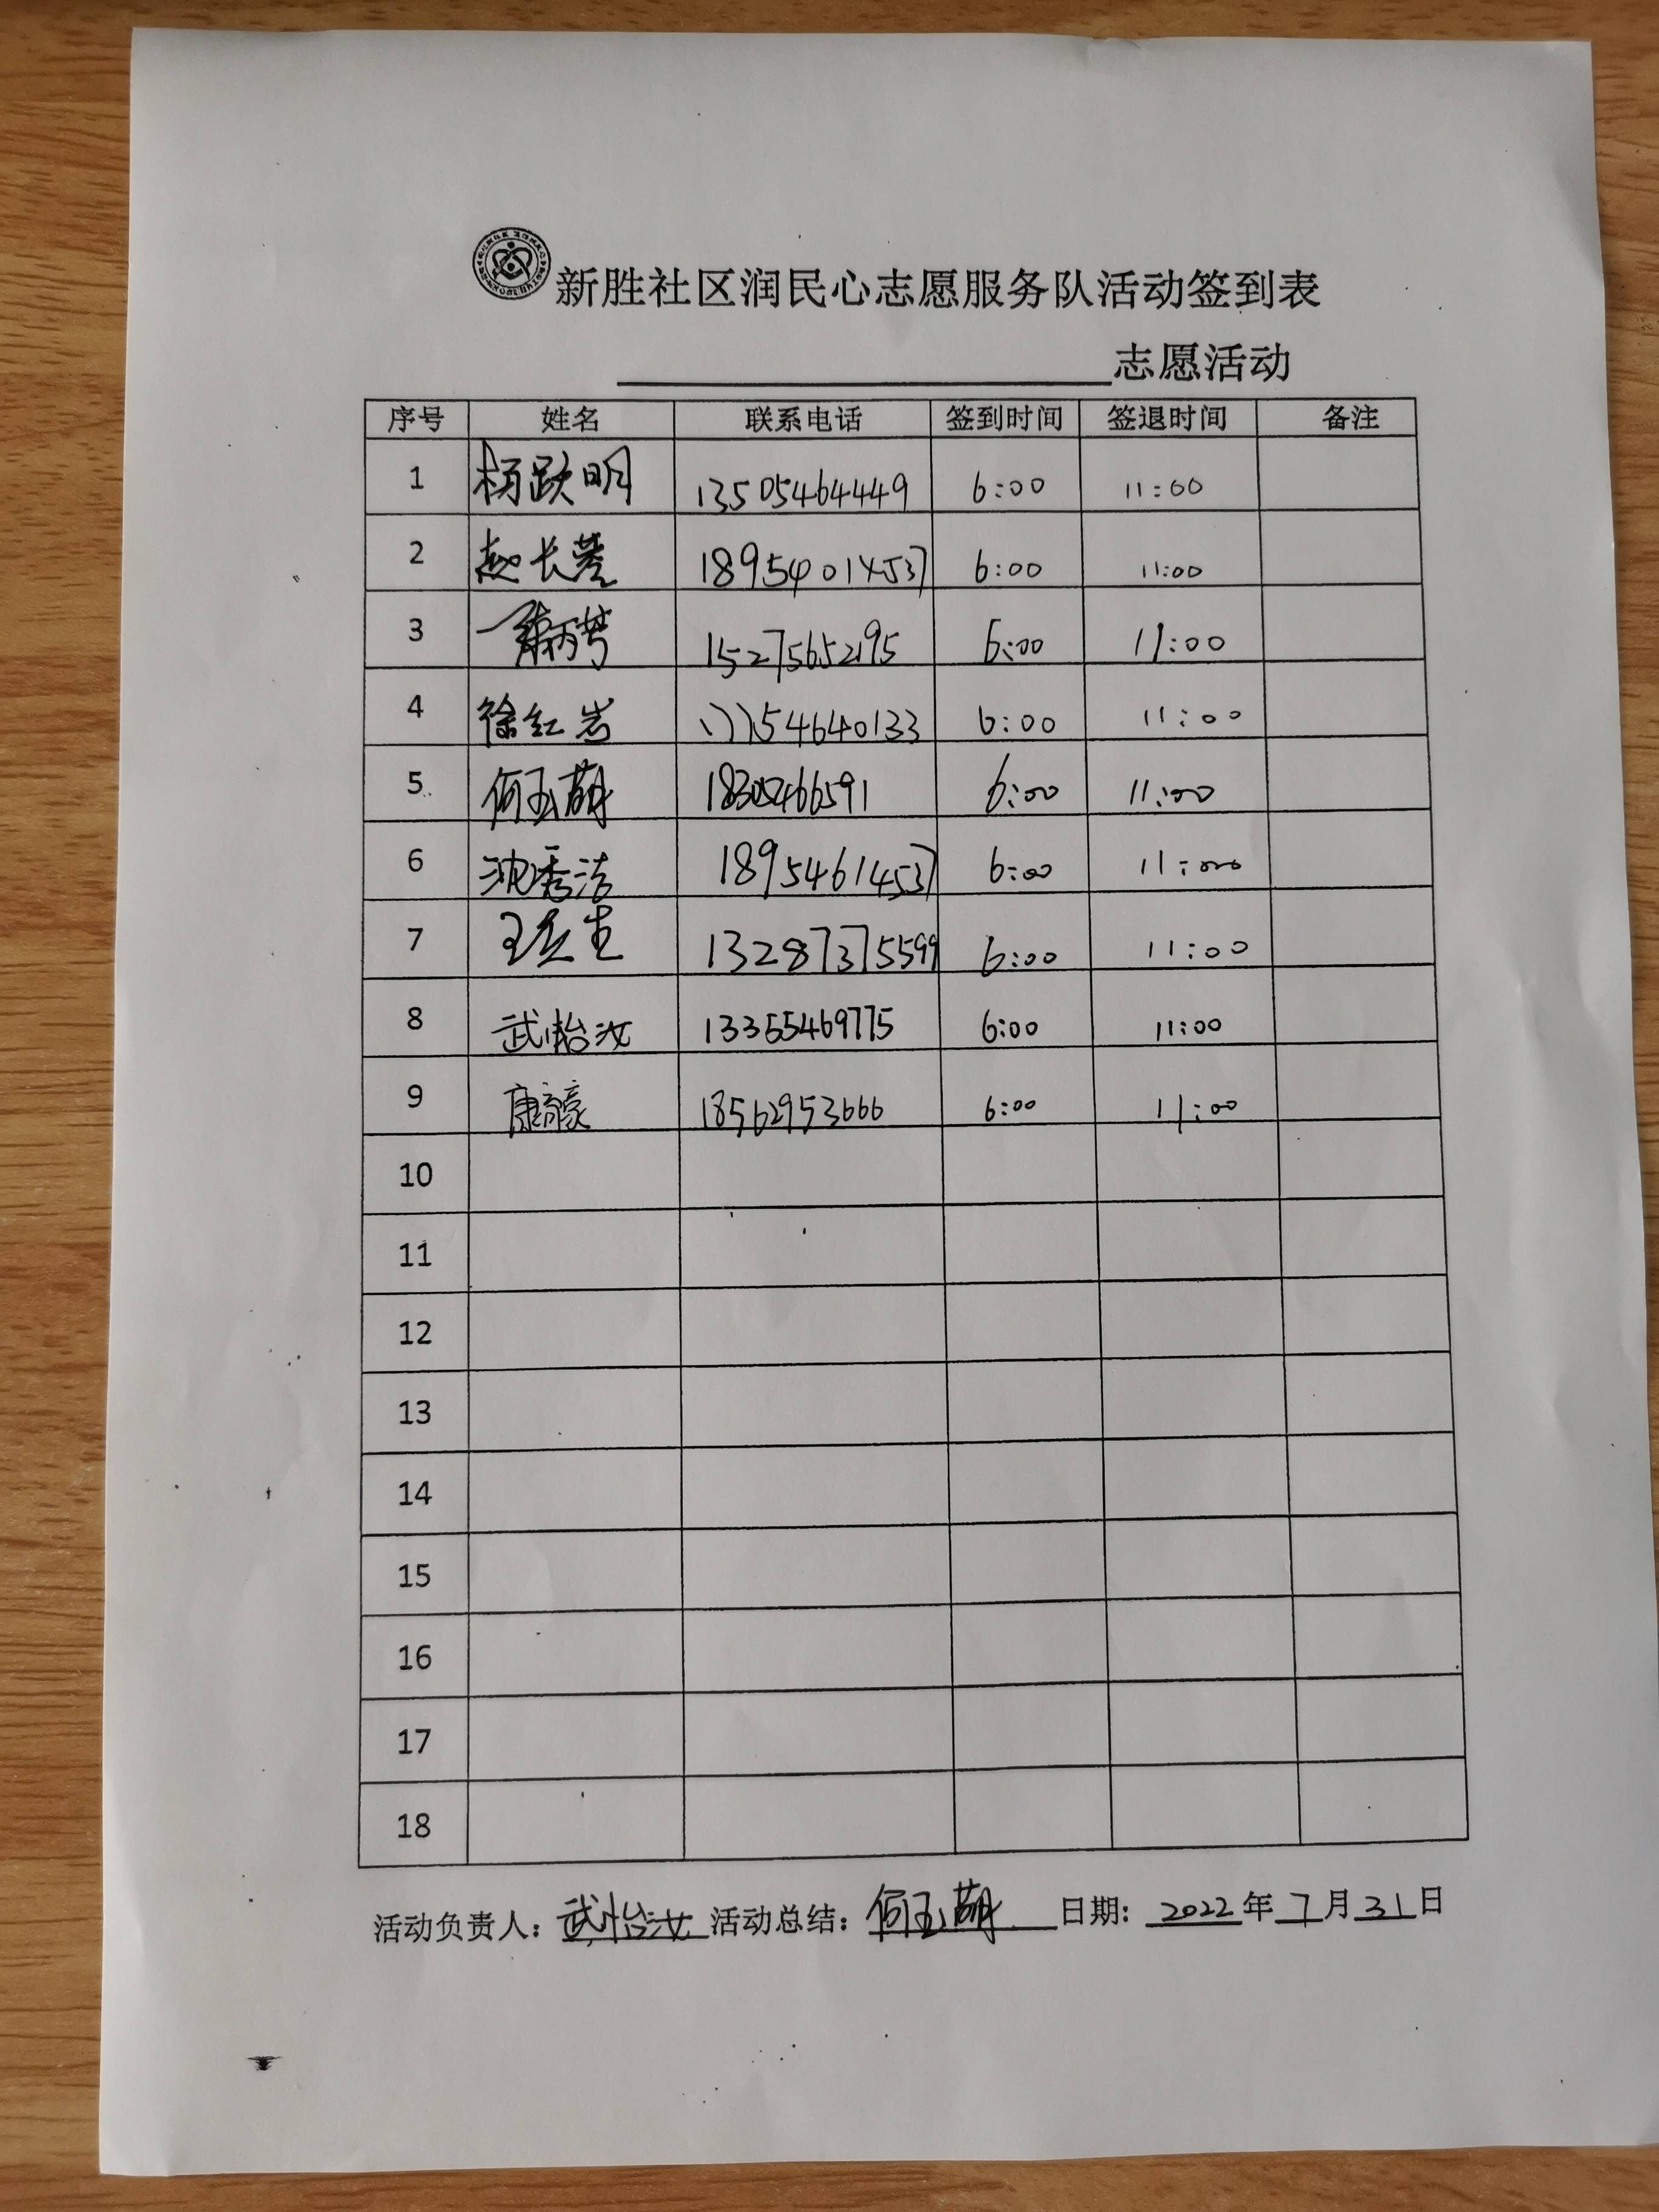 新胜社区润民心志愿服务队活动签到表
志愿活动
序号 姓名 联系电话 签到时间 签退时间 备注
1 杨跃明 13505464449 6:00 11:00
2 赵长 6:00 11:00
3 15275652195 6:00 11:00
4 徐红岩 54640133 6:00 11:00
5 何玉萌 6:00 11:00
6 沈秀洁 18954614537 6:00 11:00
7 王 生 13287375599 6:00 11:00
8 武怡汝 13355469775 6:00 11:00
9 康 豪 18562953666 6:00 11:00
10
11
12
13
14
15
16
17
18
活动负责人: 武怡汝 活动总结: 何玉萌 日期: 2022 年 7 月 31 日